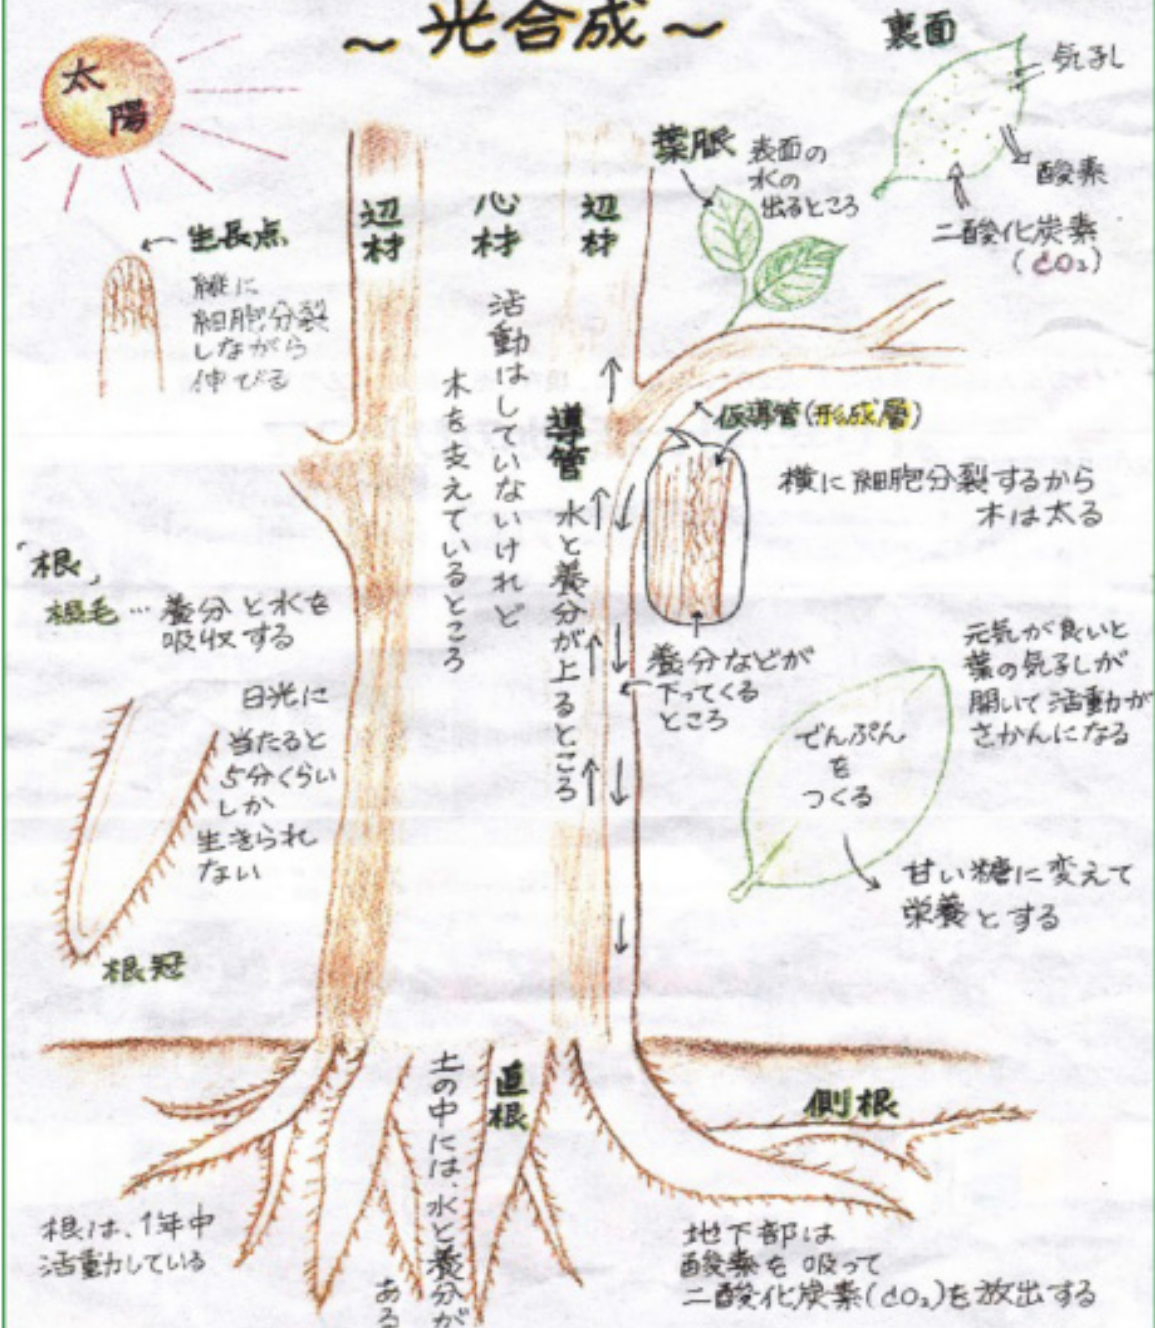 ～光合成～
太
陽
裏面
気孔
酸素
二酸化炭素
(CO₂)
葉脈
表面の
水の
出るところ
生長点
縦に
細胞分裂
しながら
伸びる
辺材
心材
辺材
活動はしていないけれど
木を支えているところ
導管
水と養分が上るところ
仮導管(形成層)
横に細胞分裂するから
木は太る
養分などが
下ってくる
ところ
根
根毛…養分と水を
吸収する
日光に
当たると
5分くらい
しか
生きられ
ない
根冠
元気が良いと
葉の気孔が
開いて活動が
さかんになる
でんぷん
を
つくる
甘い糖に変えて
栄養とする
直根
側根
土の中には、水と養分が
ある
根は、1年中
活動している
地下部は
酸素を吸って
二酸化炭素(CO₂)を放出する